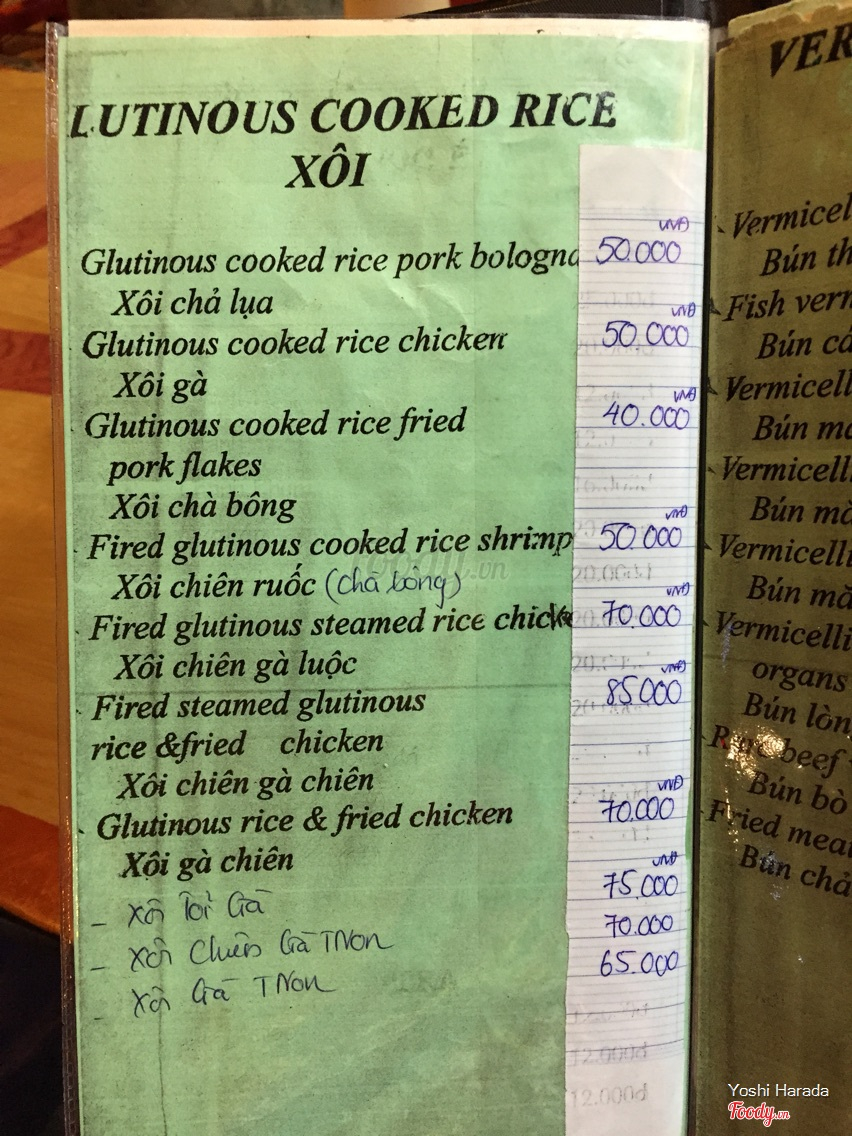 LUTINOUS COOKED RICE
XÔI
VNĐ
Glutinous cooked rice pork bologna 50.000
Xôi chả lụa
VNĐ
Glutinous cooked rice chicken 50.000
Xôi gà
VNĐ
Glutinous cooked rice fried 40.000
pork flakes
Xôi chà bông
VNĐ
Fired glutinous cooked rice shrimp 50.000
Xôi chiên ruốc (chà bông)
VNĐ
Fired glutinous steamed rice chicke 70.000
Xôi chiên gà luộc
VNĐ
Fired steamed glutinous 85.000
rice &fried chicken
Xôi chiên gà chiên
VNĐ
Glutinous rice & fried chicken 70.000
Xôi gà chiên
VNĐ
- Xôi Gà 75.000
- Xôi Chiên Gà TNon 70.000
- Xôi Gà TNon 65.000
12.000đ
12.000đ
VER
Vermicel
Bún th
Fish verm
Bún cá
Vermicelli
Bún mă
Vermicelli
Bún mă
Vermicelli
Bún mă
Vermicelli
organs
Bún lòn
beef
Bún bò
Fried mea
Bún chả
Yoshi Harada
Foody.vn